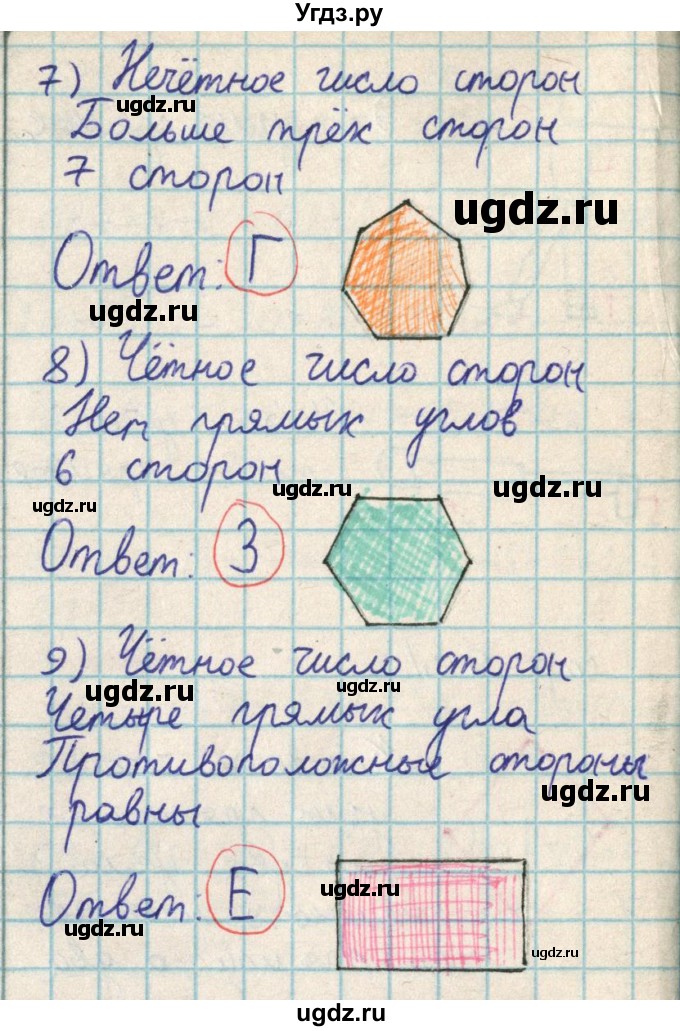 Угдз.ру
7) Нечётное число сторон
ugdz.ru
Больше трёх сторон
7 сторон
ugdz.ru
Ответ: Г
ugdz.ru
8) Чётное число сторон
Нет прямых углов
6 сторон
ugdz.ru ugdz.ru ugdz.ru
Ответ: З
9) Чётное число сторон
ugdz.ru ugdz.ru
Четыре прямых угла
Противоположные стороны
ugdz.ru
равны
Ответ: Е
ugdz.ru
ugdz.ru
ugdz.ru
ugdz.ru